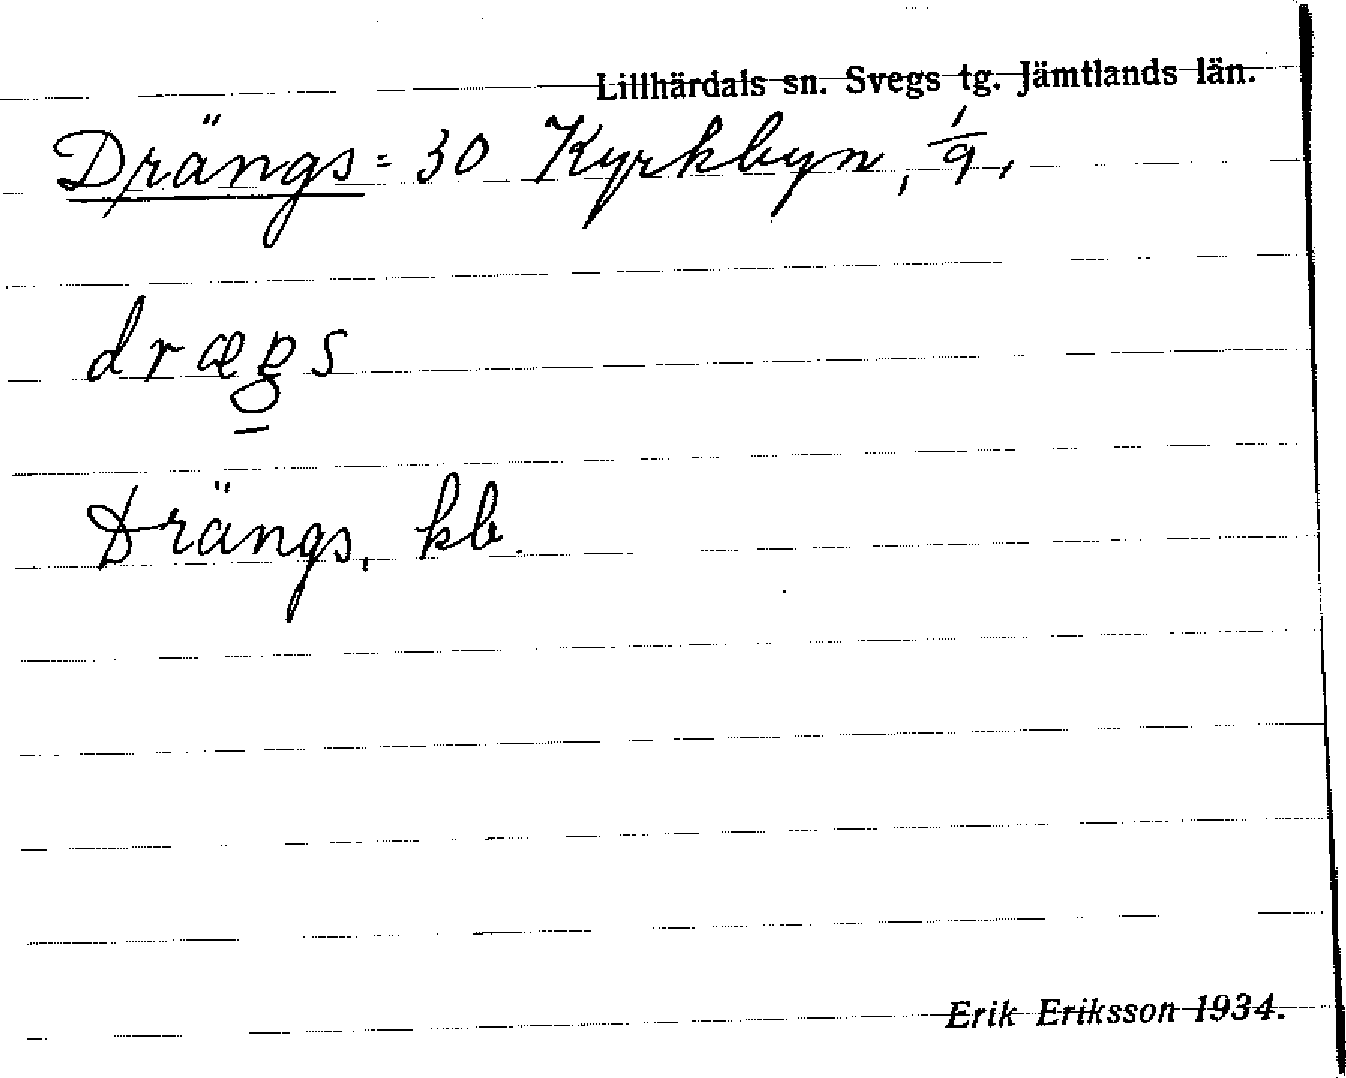 Lillhärdals sn. Svegs tg. Jämtlands län.
Drängs = 30 Kyrkbyn, 1/9,
Drängs, kb.
Erik Eriksson 1934.